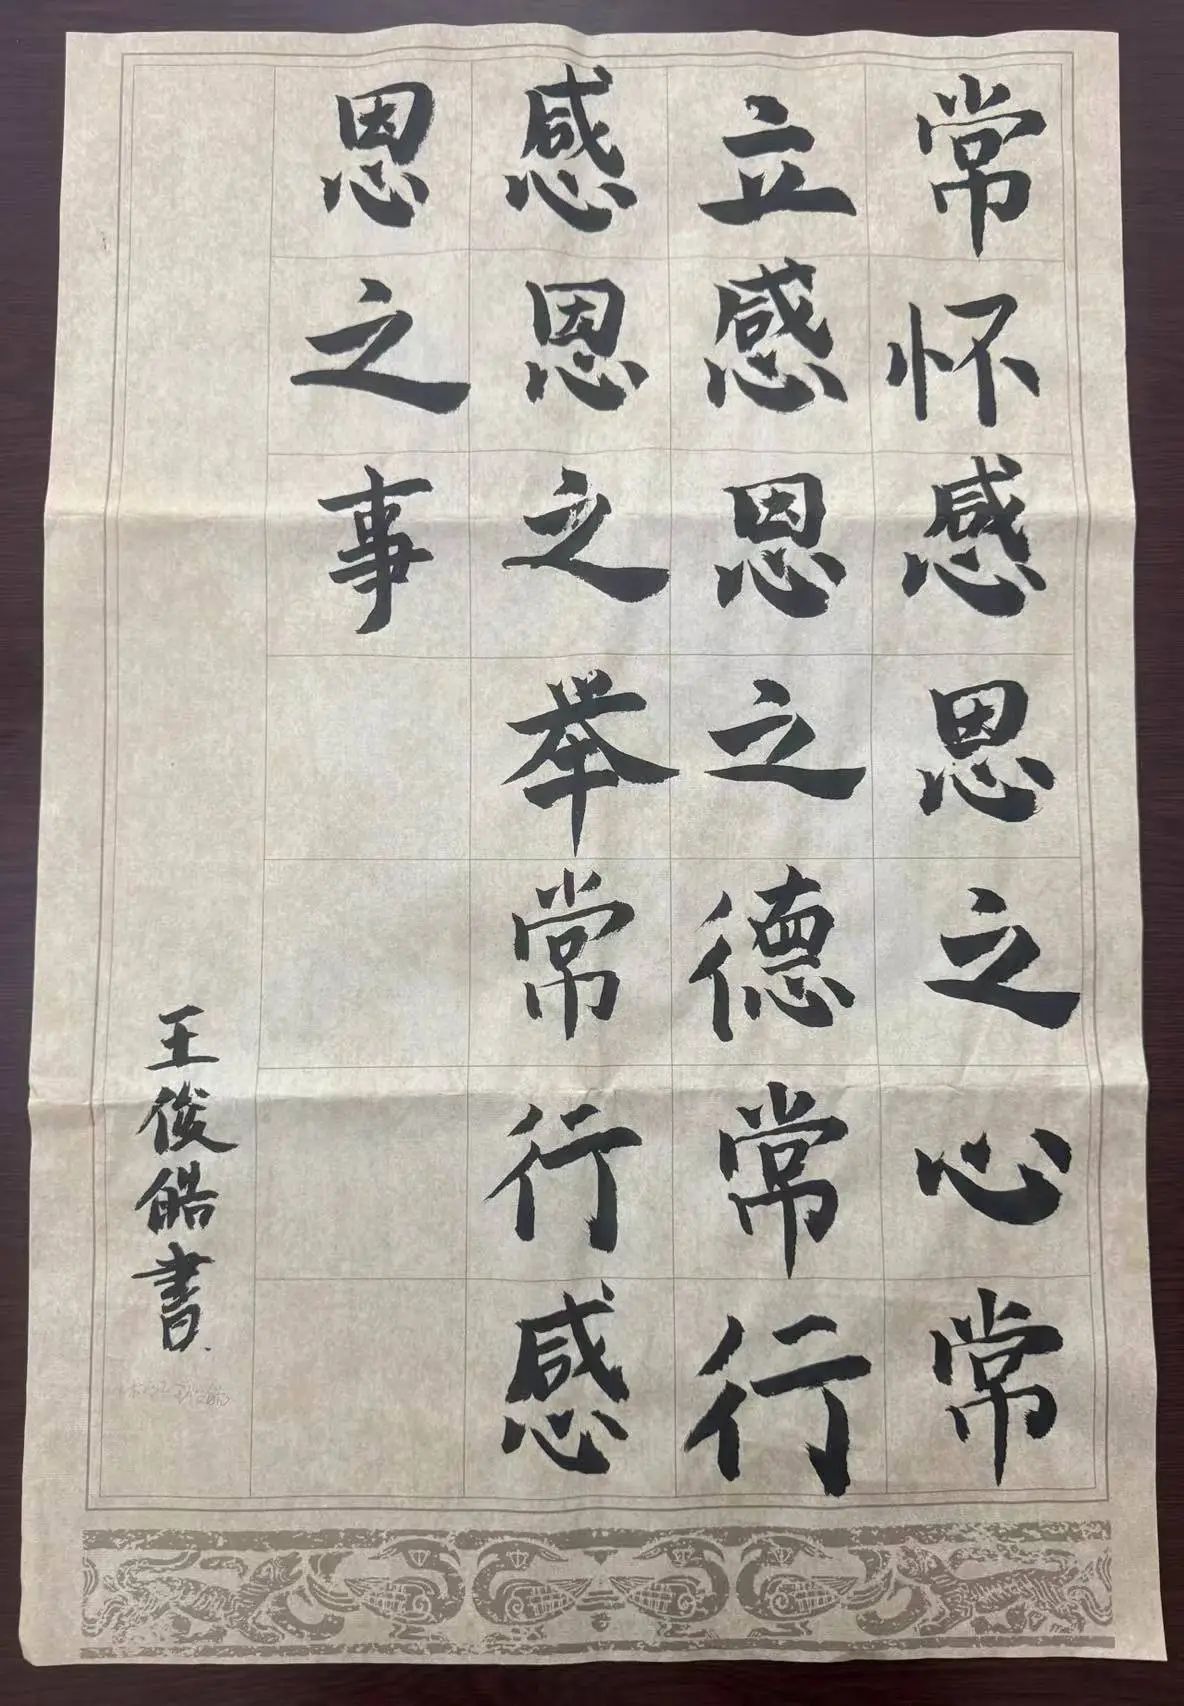 常怀感恩之心常
立感恩之德常行
感恩之举常行感
恩之事
王俊皓書